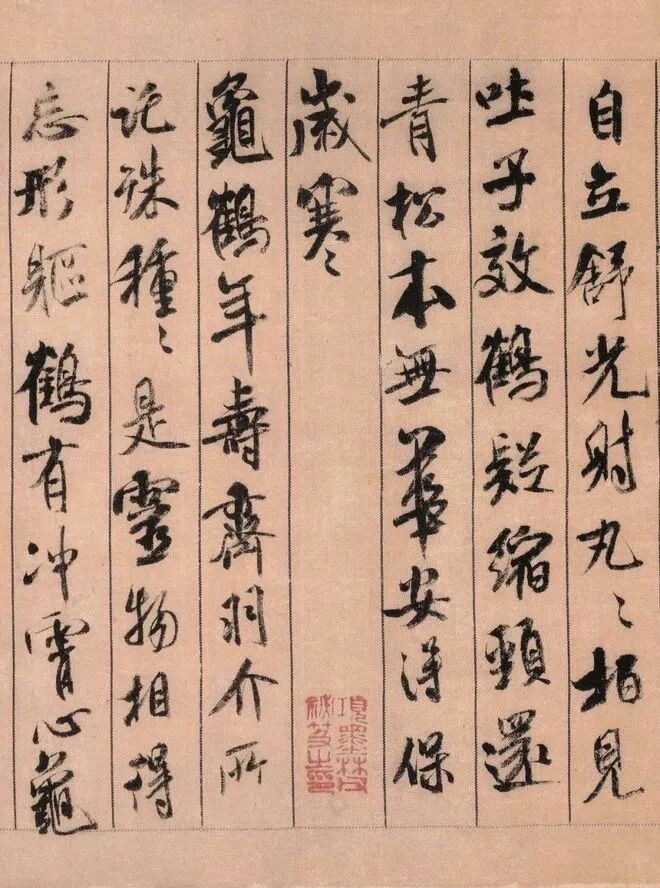 自立舒光射丸〻栢見
吐子效鶴疑縮頸還
青松本無華安得保
歲寒
龜鶴年壽齊羽介所
託殊種〻是靈物相得
忘形軀鶴有冲霄心龜
項墨林父
秘笈之印